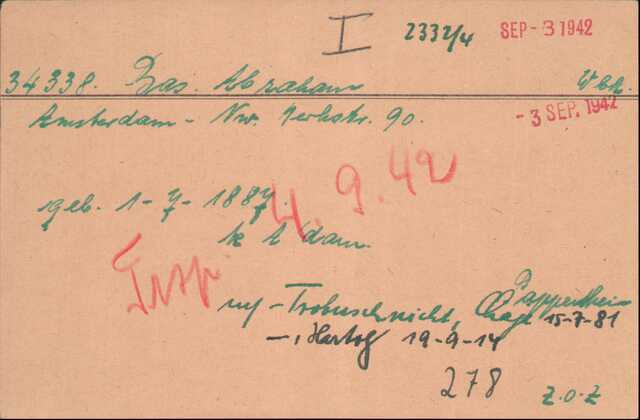 I 2332/4 SEP - 3 1942
34338. Bas. Abraham Wbk.
Amsterdam - Nw. Kerkstr. 90. - 3 SEP. 1942
geb. 1-7-1887. 4.9.42
te A'dam
Trsp
Pappenheim
15-7-81
-, Hartog 19-9-14
278 z.o.z